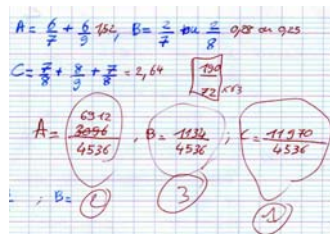 A = 6/7 + 6/9 1,52, B = 2/7 ou 2/8 0,28 ou 0,25
C = 7/8 + 8/9 + 7/8 = 2,64 190/72 x63
A = 6912 3096/4536 , B = 1134/4536 ; C = 11970/4536
; B = 2 3 1